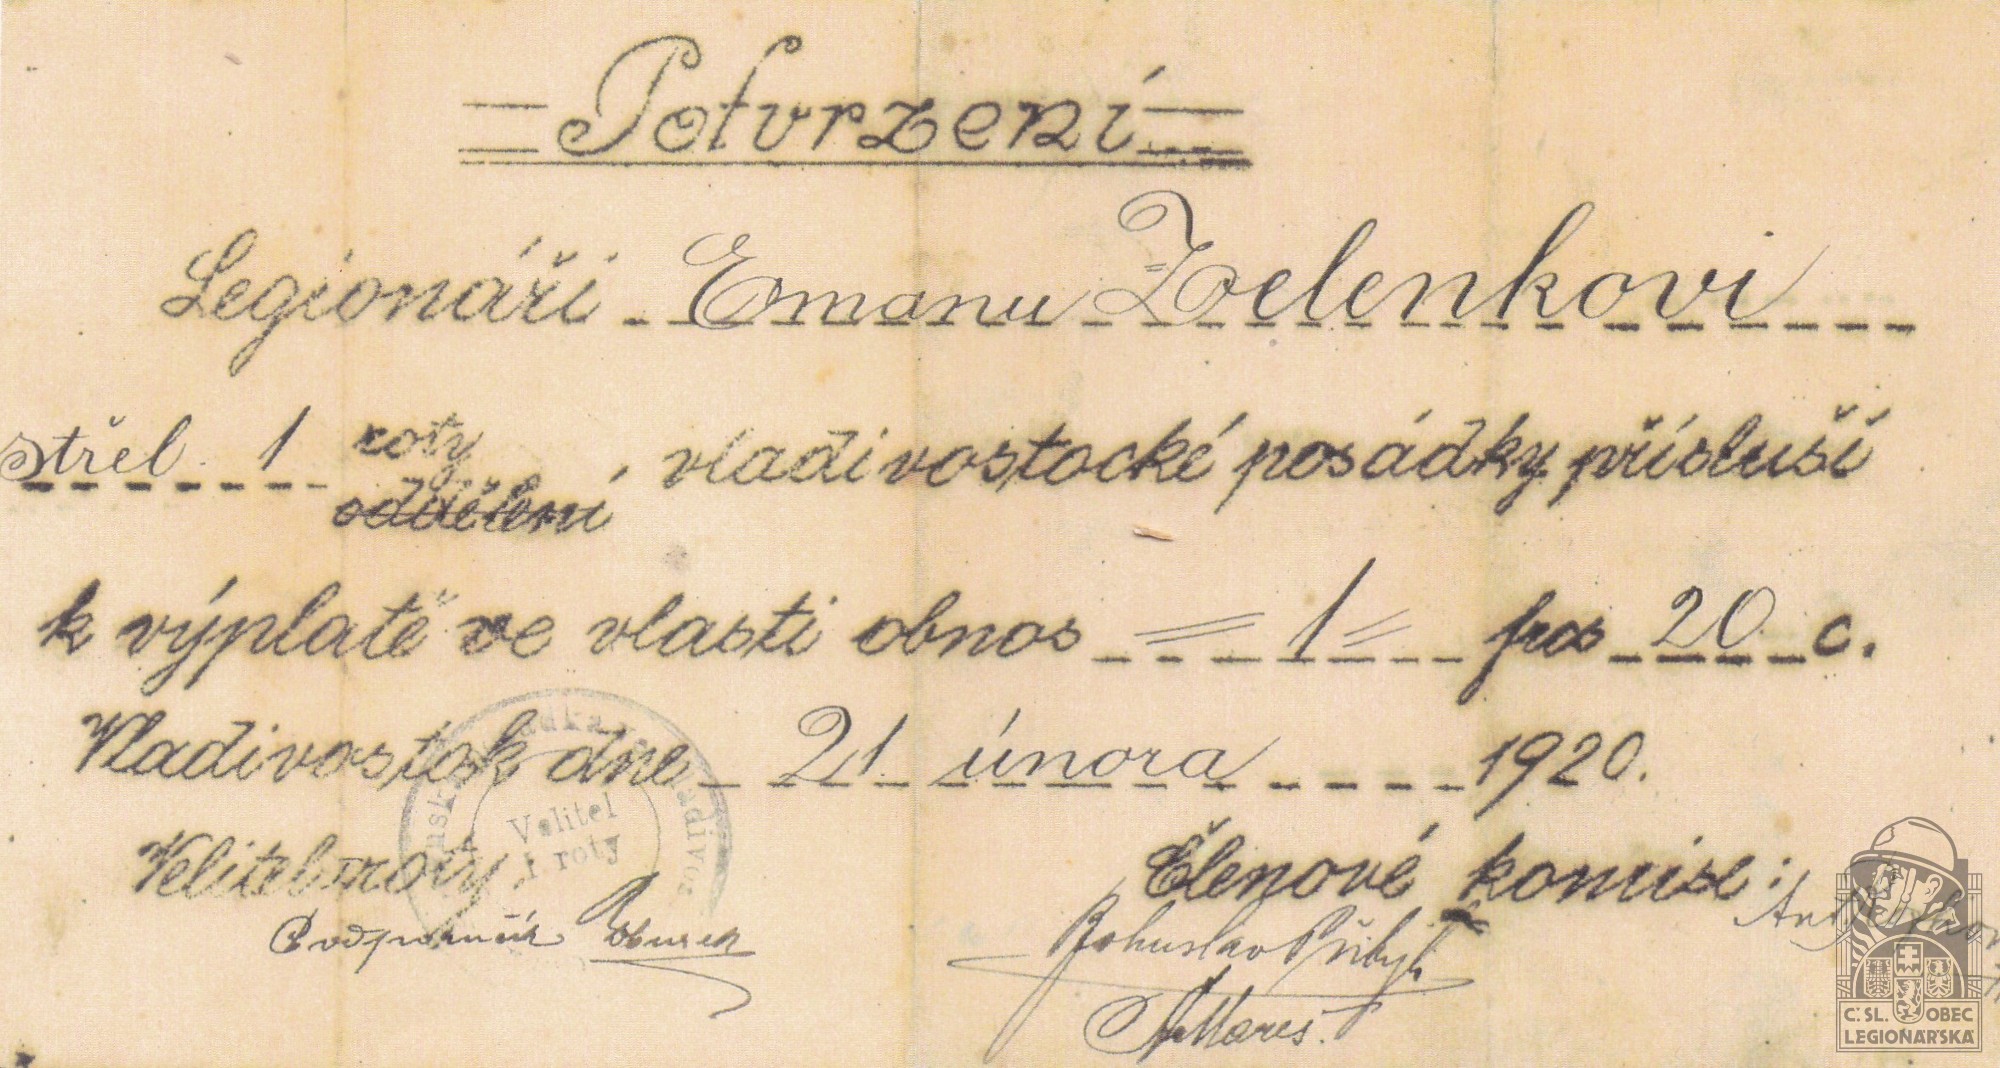 Potvrzení
Legionáři Emanu Zelenkovi
střel. 1 roty
oddělení, vladivostocké posádky přísluší
k výplatě ve vlasti obnos = 1 = frcs 20 c.
Vladivostok dne 21 února 1920.
Velitel roty
Velitel
1 roty
Členové komise:
Podporučík
Bohuslav Přibyl
Mareš.
Č.SL. OBEC
LEGIONÁŘSKÁ